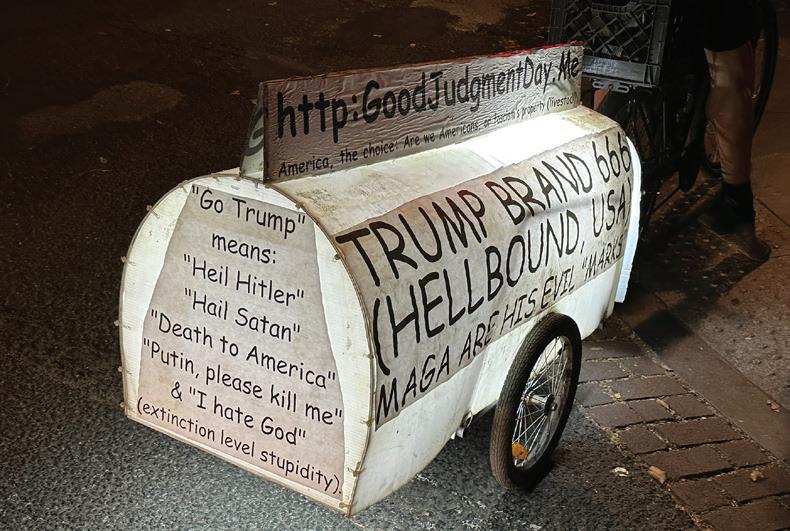 http:GoodJudgmentDay.Me
America, the choice: Are we Americans, or fascist's property (livestock)
TRUMP BRAND 666
(HELLBOUND, USA)
MAGA ARE HIS EVIL "MARKS
"Go Trump"
means:
"Heil Hitler"
"Hail Satan"
"Death to America"
"Putin, please kill me"
& "I hate God"
(extinction level stupidity).